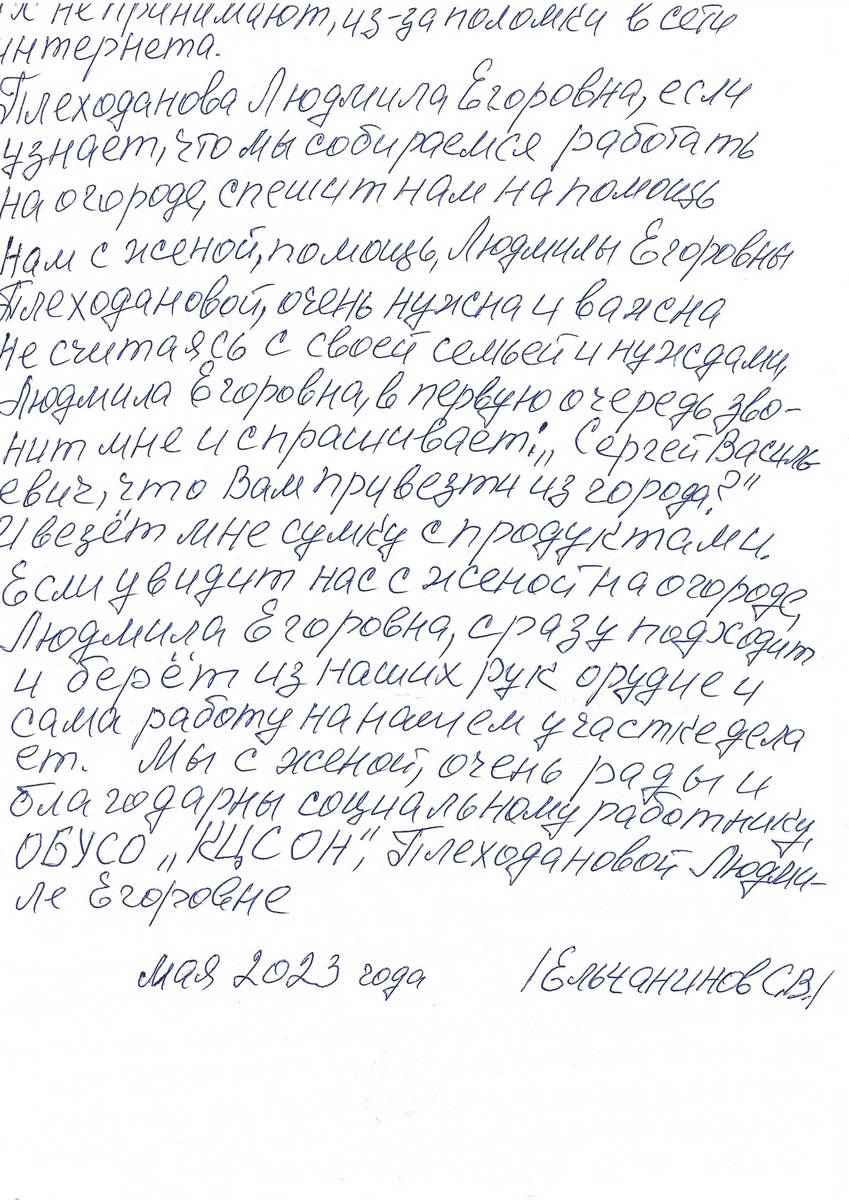 не принимают, из-за поломки в сети
интернета.
Плеходанова Людмила Егоровна, если
узнает, что мы собираемся работать
на огороде, спешит нам на помощь
Нам с женой, помощь, Людмилы Егоровны
Плеходановой, очень нужна и важна
Не считаясь с своей семьей и нуждами,
Людмила Егоровна, в первую очередь зво-
нит мне и спрашивает: „Сергей Василь
евич, что Вам привезти из города?"
И везёт мне сумку с продуктами.
Если увидит нас с женой на огороде,
Людмила Егоровна, сразу подходит
и берёт из наших рук орудие и
сама работу на нашем участке дела
ет. Мы с женой, очень рады и
благодарны социальному работнику,
ОБУСО „КЦСОН", Плеходановой Людми-
ле Егоровне
мая 2023 года /Ельчанинов С.В./